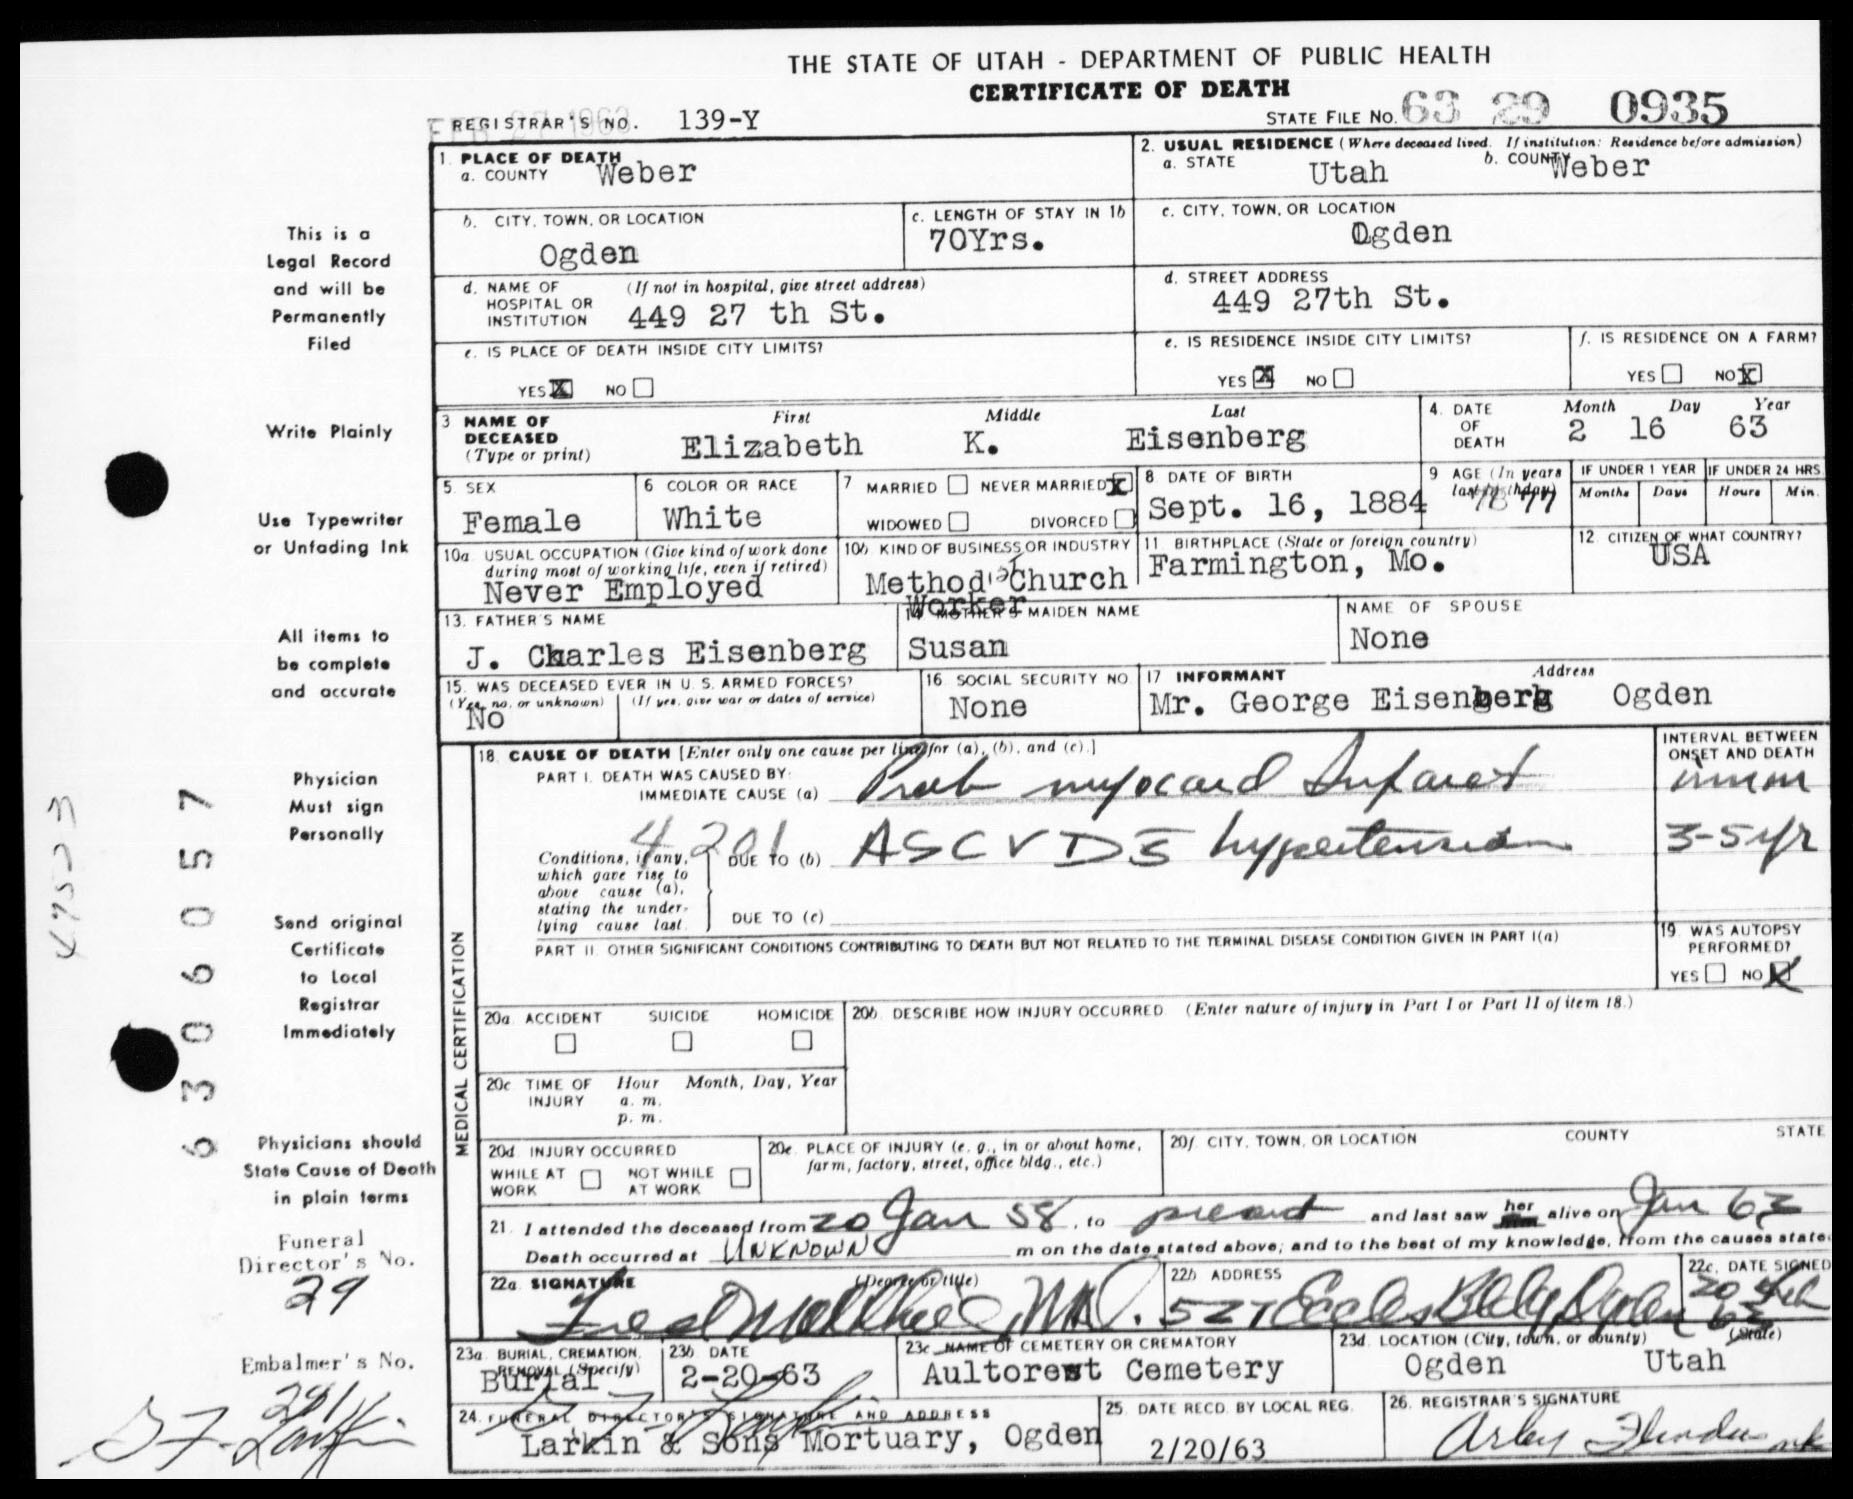 THE STATE OF UTAH - DEPARTMENT OF PUBLIC HEALTH
CERTIFICATE OF DEATH
FEB 27 1963
REGISTRAR'S NO. 139-Y
STATE FILE NO. 63 29 0935
1. PLACE OF DEATH
a. COUNTY Weber
2. USUAL RESIDENCE (Where deceased lived. If institution: Residence before admission)
a. STATE Utah b. COUNTY Weber
b. CITY, TOWN, OR LOCATION
Ogden
c. LENGTH OF STAY IN 1b
70Yrs.
c. CITY, TOWN, OR LOCATION
Ogden
d. NAME OF HOSPITAL OR INSTITUTION (If not in hospital, give street address)
449 27 th St.
d. STREET ADDRESS
449 27th St.
e. IS PLACE OF DEATH INSIDE CITY LIMITS?
YES X NO
e. IS RESIDENCE INSIDE CITY LIMITS?
YES X NO
f. IS RESIDENCE ON A FARM?
YES NO X
3 NAME OF DECEASED (Type or print)
First Middle Last
Elizabeth K. Eisenberg
4. DATE OF DEATH
Month Day Year
2 16 63
5. SEX
Female
6 COLOR OR RACE
White
7 MARRIED NEVER MARRIED X
WIDOWED DIVORCED
8 DATE OF BIRTH
Sept. 16, 1884
9 AGE (In years last birthday)
78
IF UNDER 1 YEAR
Months Days
IF UNDER 24 HRS.
Hours Min.
10a USUAL OCCUPATION (Give kind of work done
during most of working life, even if retired)
Never Employed
10b KIND OF BUSINESS OR INDUSTRY
Method Church
Worker
11 BIRTHPLACE (State or foreign country)
Farmington, Mo.
12. CITIZEN OF WHAT COUNTRY?
USA
13. FATHER'S NAME
J. Charles Eisenberg
14 MOTHER'S MAIDEN NAME
Susan
NAME OF SPOUSE
None
15. WAS DECEASED EVER IN U.S. ARMED FORCES?
(Yes, no, or unknown) (If yes, give war or dates of service)
No
16 SOCIAL SECURITY NO
None
17 INFORMANT Address
Mr. George Eisenberg Ogden
MEDICAL CERTIFICATION
18. CAUSE OF DEATH [Enter only one cause per line for (a), (b), and (c).]
PART I. DEATH WAS CAUSED BY:
IMMEDIATE CAUSE (a) Prob myocard Infarct
INTERVAL BETWEEN
ONSET AND DEATH
4201
Conditions, if any,
which gave rise to
above cause (a),
stating the under-
lying cause last.
DUE TO (b) ASCVD c̄ hypertension
3-5 yr
DUE TO (c)
PART II. OTHER SIGNIFICANT CONDITIONS CONTRIBUTING TO DEATH BUT NOT RELATED TO THE TERMINAL DISEASE CONDITION GIVEN IN PART I(a)
19. WAS AUTOPSY
PERFORMED?
YES NO X
20a ACCIDENT SUICIDE HOMICIDE
20b. DESCRIBE HOW INJURY OCCURRED (Enter nature of injury in Part I or Part II of item 18.)
20c TIME OF INJURY Hour Month, Day, Year
a. m.
p. m.
20d INJURY OCCURRED
WHILE AT WORK NOT WHILE AT WORK
20e PLACE OF INJURY (e. g., in or about home,
farm, factory, street, office bldg., etc.)
20f. CITY, TOWN, OR LOCATION COUNTY STATE
21. I attended the deceased from 20 Jan 58, to present and last saw her alive on Jan 63
Death occurred at UNKNOWN m on the date stated above; and to the best of my knowledge, from the causes state
22a. SIGNATURE (Degree or title)
M.D.
22b ADDRESS
527 Eccles Bldg Ogden
22c. DATE SIGNED
20 Feb
63
23a BURIAL, CREMATION, REMOVAL (Specify)
Burial
23b DATE
2-20-63
23c NAME OF CEMETERY OR CREMATORY
Aultorest Cemetery
23d. LOCATION (City, town, or county) (State)
Ogden Utah
24. FUNERAL DIRECTOR'S SIGNATURE AND ADDRESS
Larkin & Sons Mortuary, Ogden
25 DATE RECD. BY LOCAL REG.
2/20/63
26. REGISTRAR'S SIGNATURE
This is a
Legal Record
and will be
Permanently
Filed
Write Plainly
Use Typewriter
or Unfading Ink
All items to
be complete
and accurate
Physician
Must sign
Personally
Send original
Certificate
to Local
Registrar
Immediately
Physicians should
State Cause of Death
in plain terms
Funeral
Director's No.
29
Embalmer's No.
291
G F. Larkin
6306057